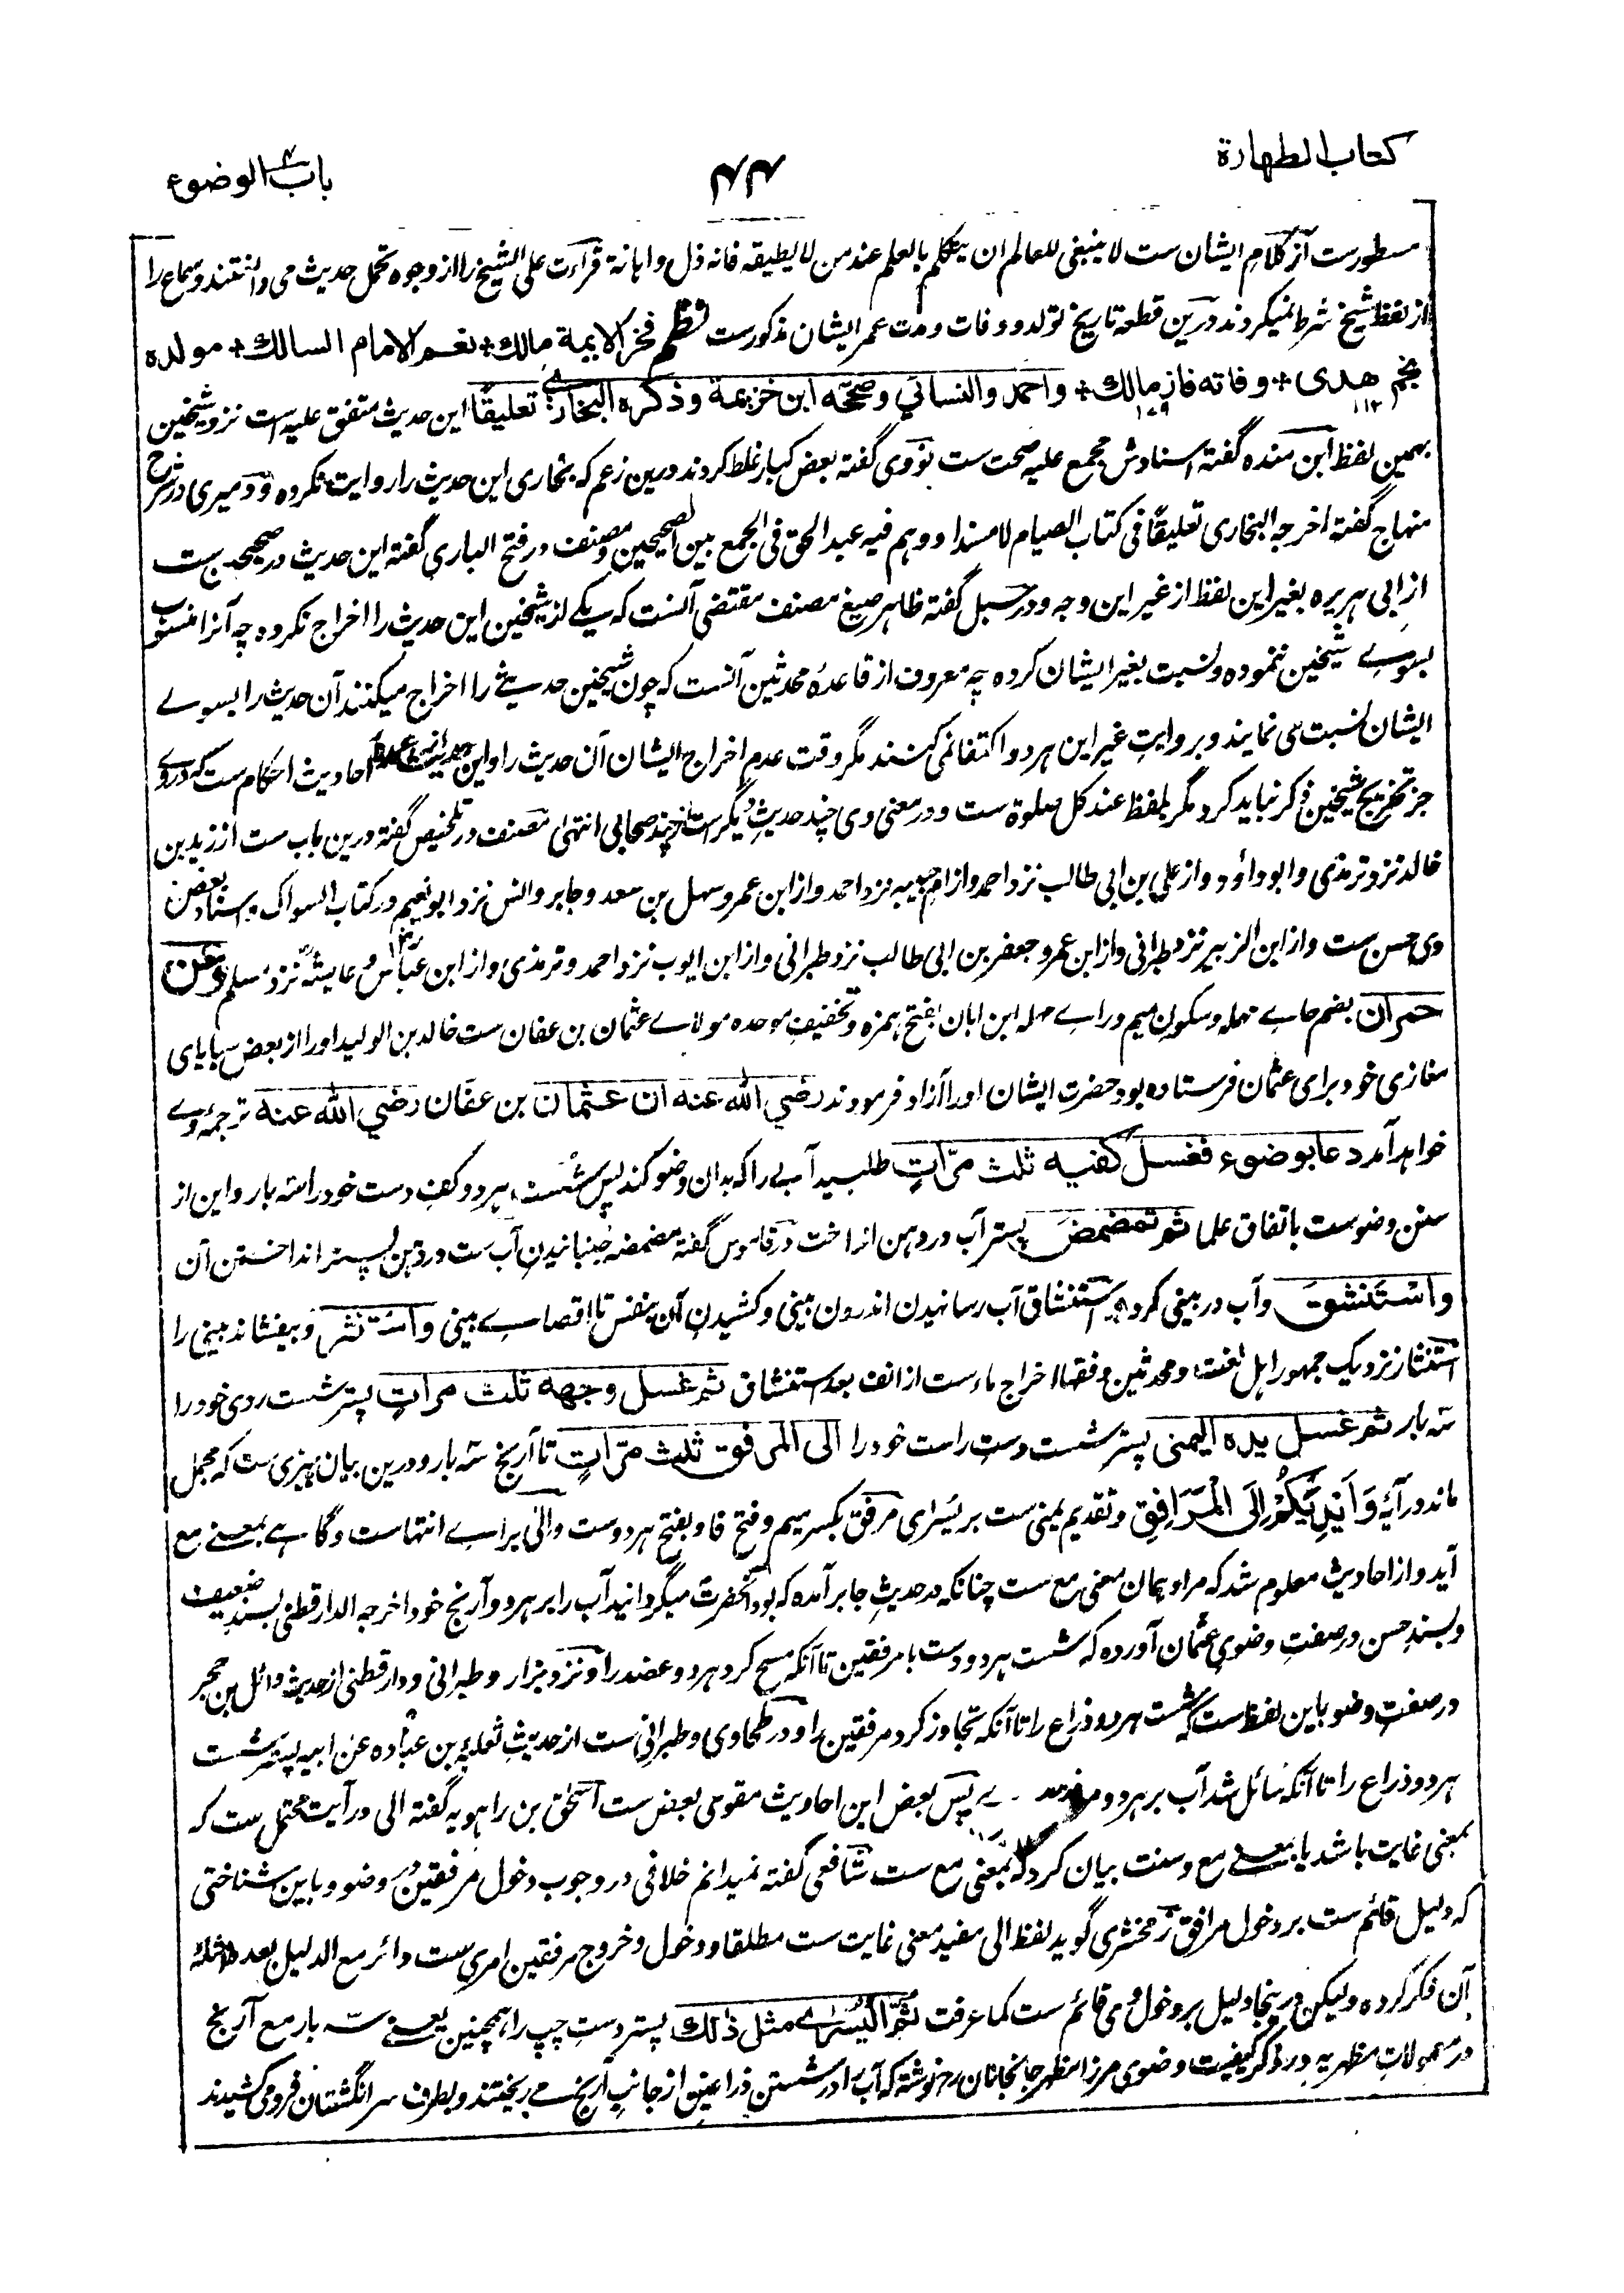 کتاب الطهارة
۴۴
باب الوضوء
مسطورست از کلام ایشان ست لا ینبغی للعالم ان یتکلم بالعلم عند من لا یطیقه فانه ذل و اهانة قرأت علی الشیخ را از وجوه تحمل حدیث می دانستند و سماع را
از لفظ شیخ شرط نمیکردند درین قطعه تاریخ تولد و وفات و مدت عمر ایشان مذکورست نظم فخر الایمة مالك + نعم الامام السالك + مولده
نجم هدی + وفاته فاز مالك + واحمد والنسائي وصححه ابن خزیمة وذکره البخاري تعلیقًا این حدیث متفق علیه است نزد شیخین
بهمین لفظ ابن منده گفته اسنادش مجمع علیه صحت ست نووی گفته بعض کبار غلط کردند درین زعم که بخاری این حدیث را روایت نکرده و دمیری در شرح
منهاج گفته اخرجه البخاری تعلیقًا فی کتاب الصیام لا مسندا و وهم فیه عبد الحق فی الجمع بین الصحیحین و مصنف در فتح الباری گفته این حدیث در صحیحین ست
از ابی هریره بغیر این لفظ از غیر این وجه و در سبل گفته ظاهر صیغ مصنف مقتضی آنست که یکے از شیخین این حدیث را اخراج نکرده چه آنرا منسوب
بسوے شیخین ننموده و نسبت بغیر ایشان کرده چه معروف از قاعدۀ محدثین آنست که چون شیخین حدیثے را اخراج میکنند آن حدیث را بسوے
ایشان نسبت می نمایند و بروایت غیر این هر دو اکتفا نمی کنند مگر وقت عدم اخراج ایشان آن حدیث را و این حدیث از عمدۀ احادیث احکام ست که در وے
جز تخریج شیخین ذکر نباید کرد مگر بلفظ عند کل صلوة ست و در معنی وی چند حدیث دیگرست از چند صحابی انتهی مصنف در تلخیص گفته درین باب ست از زید بن
خالد نزد ترمذی و ابوداؤد و از علی بن ابی طالب نزد احمد و از ام حبیبه نزد احمد و از ابن عمر و سهل بن سعد و جابر و انس نزد ابو نعیم در کتاب السواک و اسناد بعض
وی حسن ست و از ابن الزبیر نزد طبرانی و از ابن عمر و جعفر بن ابی طالب نزد طبرانی و از ابن ایوب نزد احمد و ترمذی و از ابن عباس و عایشه نزد مسلم وعن
حمران بضم حاے مهمله و سکون میم و راے مهمله ابن ابان بفتح همزه و تخفیف موحده مولاے عثمان بن عفان ست خالد بن الولید او را از بعض سبایای
مغازی خود برای عثمان فرستاده بود حضرت ایشان او را آزاد فرمودند رضي الله عنه ان عثمان بن عفان رضي الله عنه ترجمۀ وے
خواهد آمد دعا بوضوء فغسل کفیه ثلث مرّاتٍ طلبید آبے را که بدان وضو کند پس شست هر دو کف دست خود را سه بار و این از
سنن وضوست باتفاق علما ثم تمضمض پستر آب در دهن انداخت در قاموس گفته مضمضه جنبانیدن آب ست در دهن پستر انداختن آن
واستنشق و آب در بینی کرد استنشاق آب رسانیدن اندرون بینی و کشیدن آن بنفس تا اقصاے بینی واستنثر و بیفشاند بینی را
استنثار نزدیک جمهور اهل لغت و محدثین و فقها اخراج ماء ست از انف بعد استنشاق ثم غسل وجهه ثلث مرات پستر شست روی خود را
سه بار ثم غسل یده الیمنی پستر شست دست راست خود را الی المرفق ثلث مرّات تا آرنج سه بار و درین بیان چیزی ست که مجمل
ماند در آیۀ وَاَیْدِیَکُمْ اِلَی الْمَرَافِقِ و تقدیم یمنی ست بر یسری مرفق بکسر میم و فتح فا و بفتح هر دوست و الی براے انتهاست و گاهے بمعنے مع
آید و از احادیث معلوم شد که مراد همان معنی مع ست چنانکه در حدیث جابر آمده که بود آنحضرت میگردانید آب را بر هر دو آرنج خود اخرجه الدارقطنی بسند ضعیف
و بسند حسن در صفت وضوی عثمان آورده که شست هر دو دست با مرفقین تا آنکه مسح کرد هر دو عضد را و نزد بزار و طبرانی و دارقطنی از حدیث وائل بن حجر
در صفت وضو باین لفظ ست که شست هر دو ذراع را تا آنکه تجاوز کرد مرفقین را و در طحاوی و طبرانی ست از حدیث ثعلبه بن عباده عن ابیه پستر شست
هر دو ذراع را تا آنکه سائل شد آب بر هر دو پس بعض این احادیث مقوی بعض ست اسحٰق بن راهویه گفته الی در آیت محتمل ست که
بمعنی غایت باشد یا بمعنے مع و سنت بیان کرد که بمعنی مع ست شافعی گفته نمیدانم خلافی در وجوب دخول مرفقین در وضو و باین شناختی
که دلیل قائم ست بر دخول مرافق زمخشری گوید لفظ الی مفید معنی غایت ست مطلقا و دخول و خروج مرفقین امری ست دائر مع الدلیل بعده امثلۀ
آن ذکر کرده ولیکن درینجا دلیل بر دخول وی قائم ست کما عرفت ثم الیسرے مثل ذلك پستر دست چپ را همچنین یعنے سه بار مع آرنج
در معمولات مظهریه در ذکر کیفیت وضوی مرزا مظهر جانجانان رح نوشته که آب را در شستن ذراعین از جانب آرنج مے ریختند و بطرف سر انگشتان فرو می کشیدند